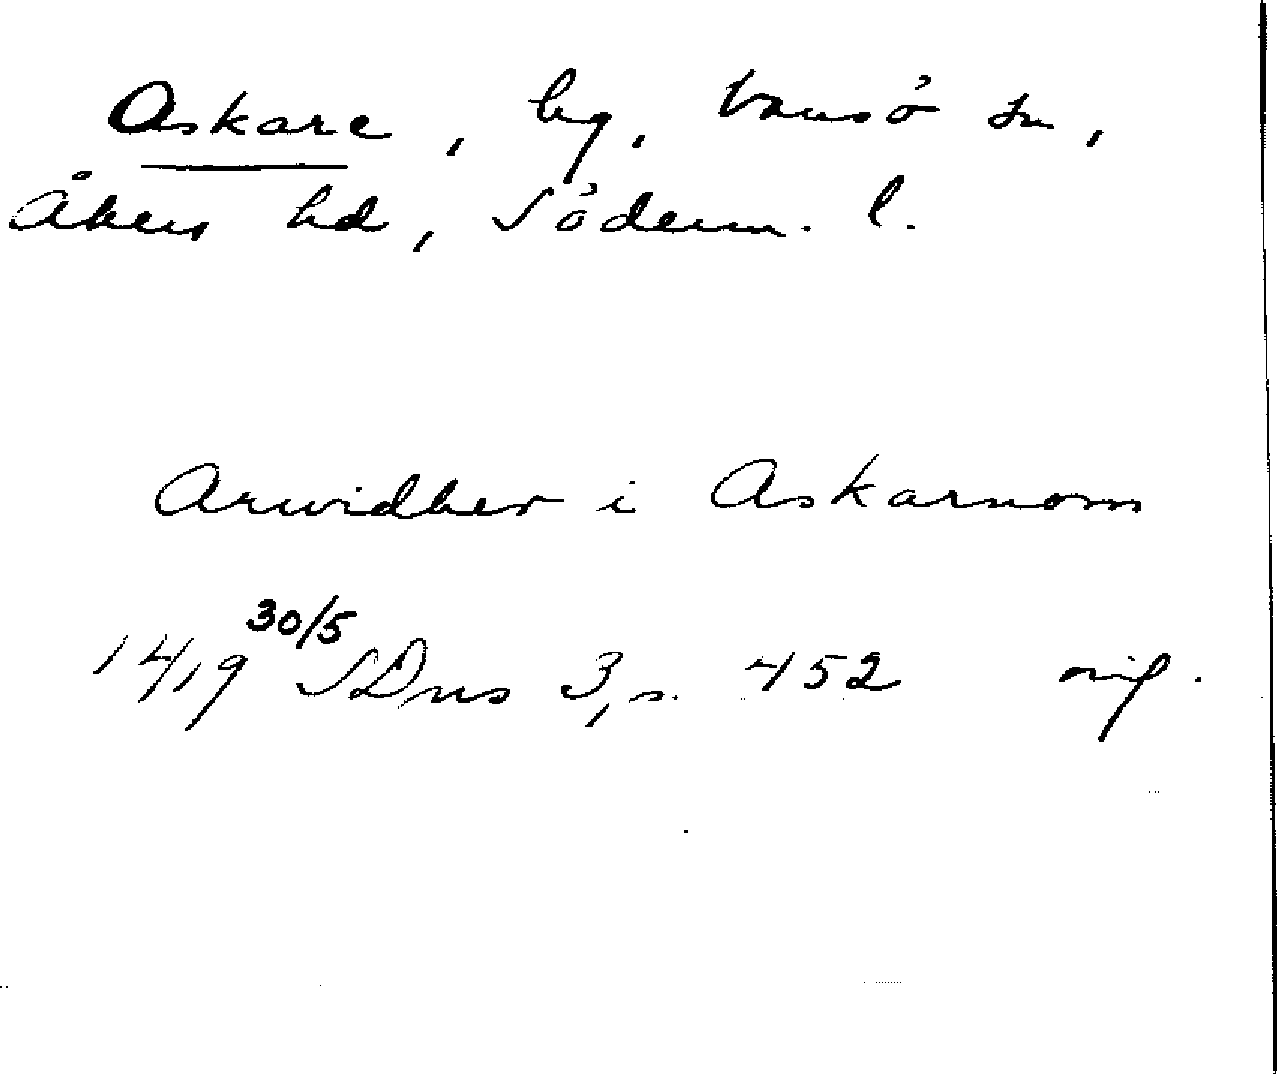 Askare, by, Vansö sn,
Åkers hd, Söderm. l.
Arwidher i Askarnom
1419 30/5 SDns 3, s. 452 orig.